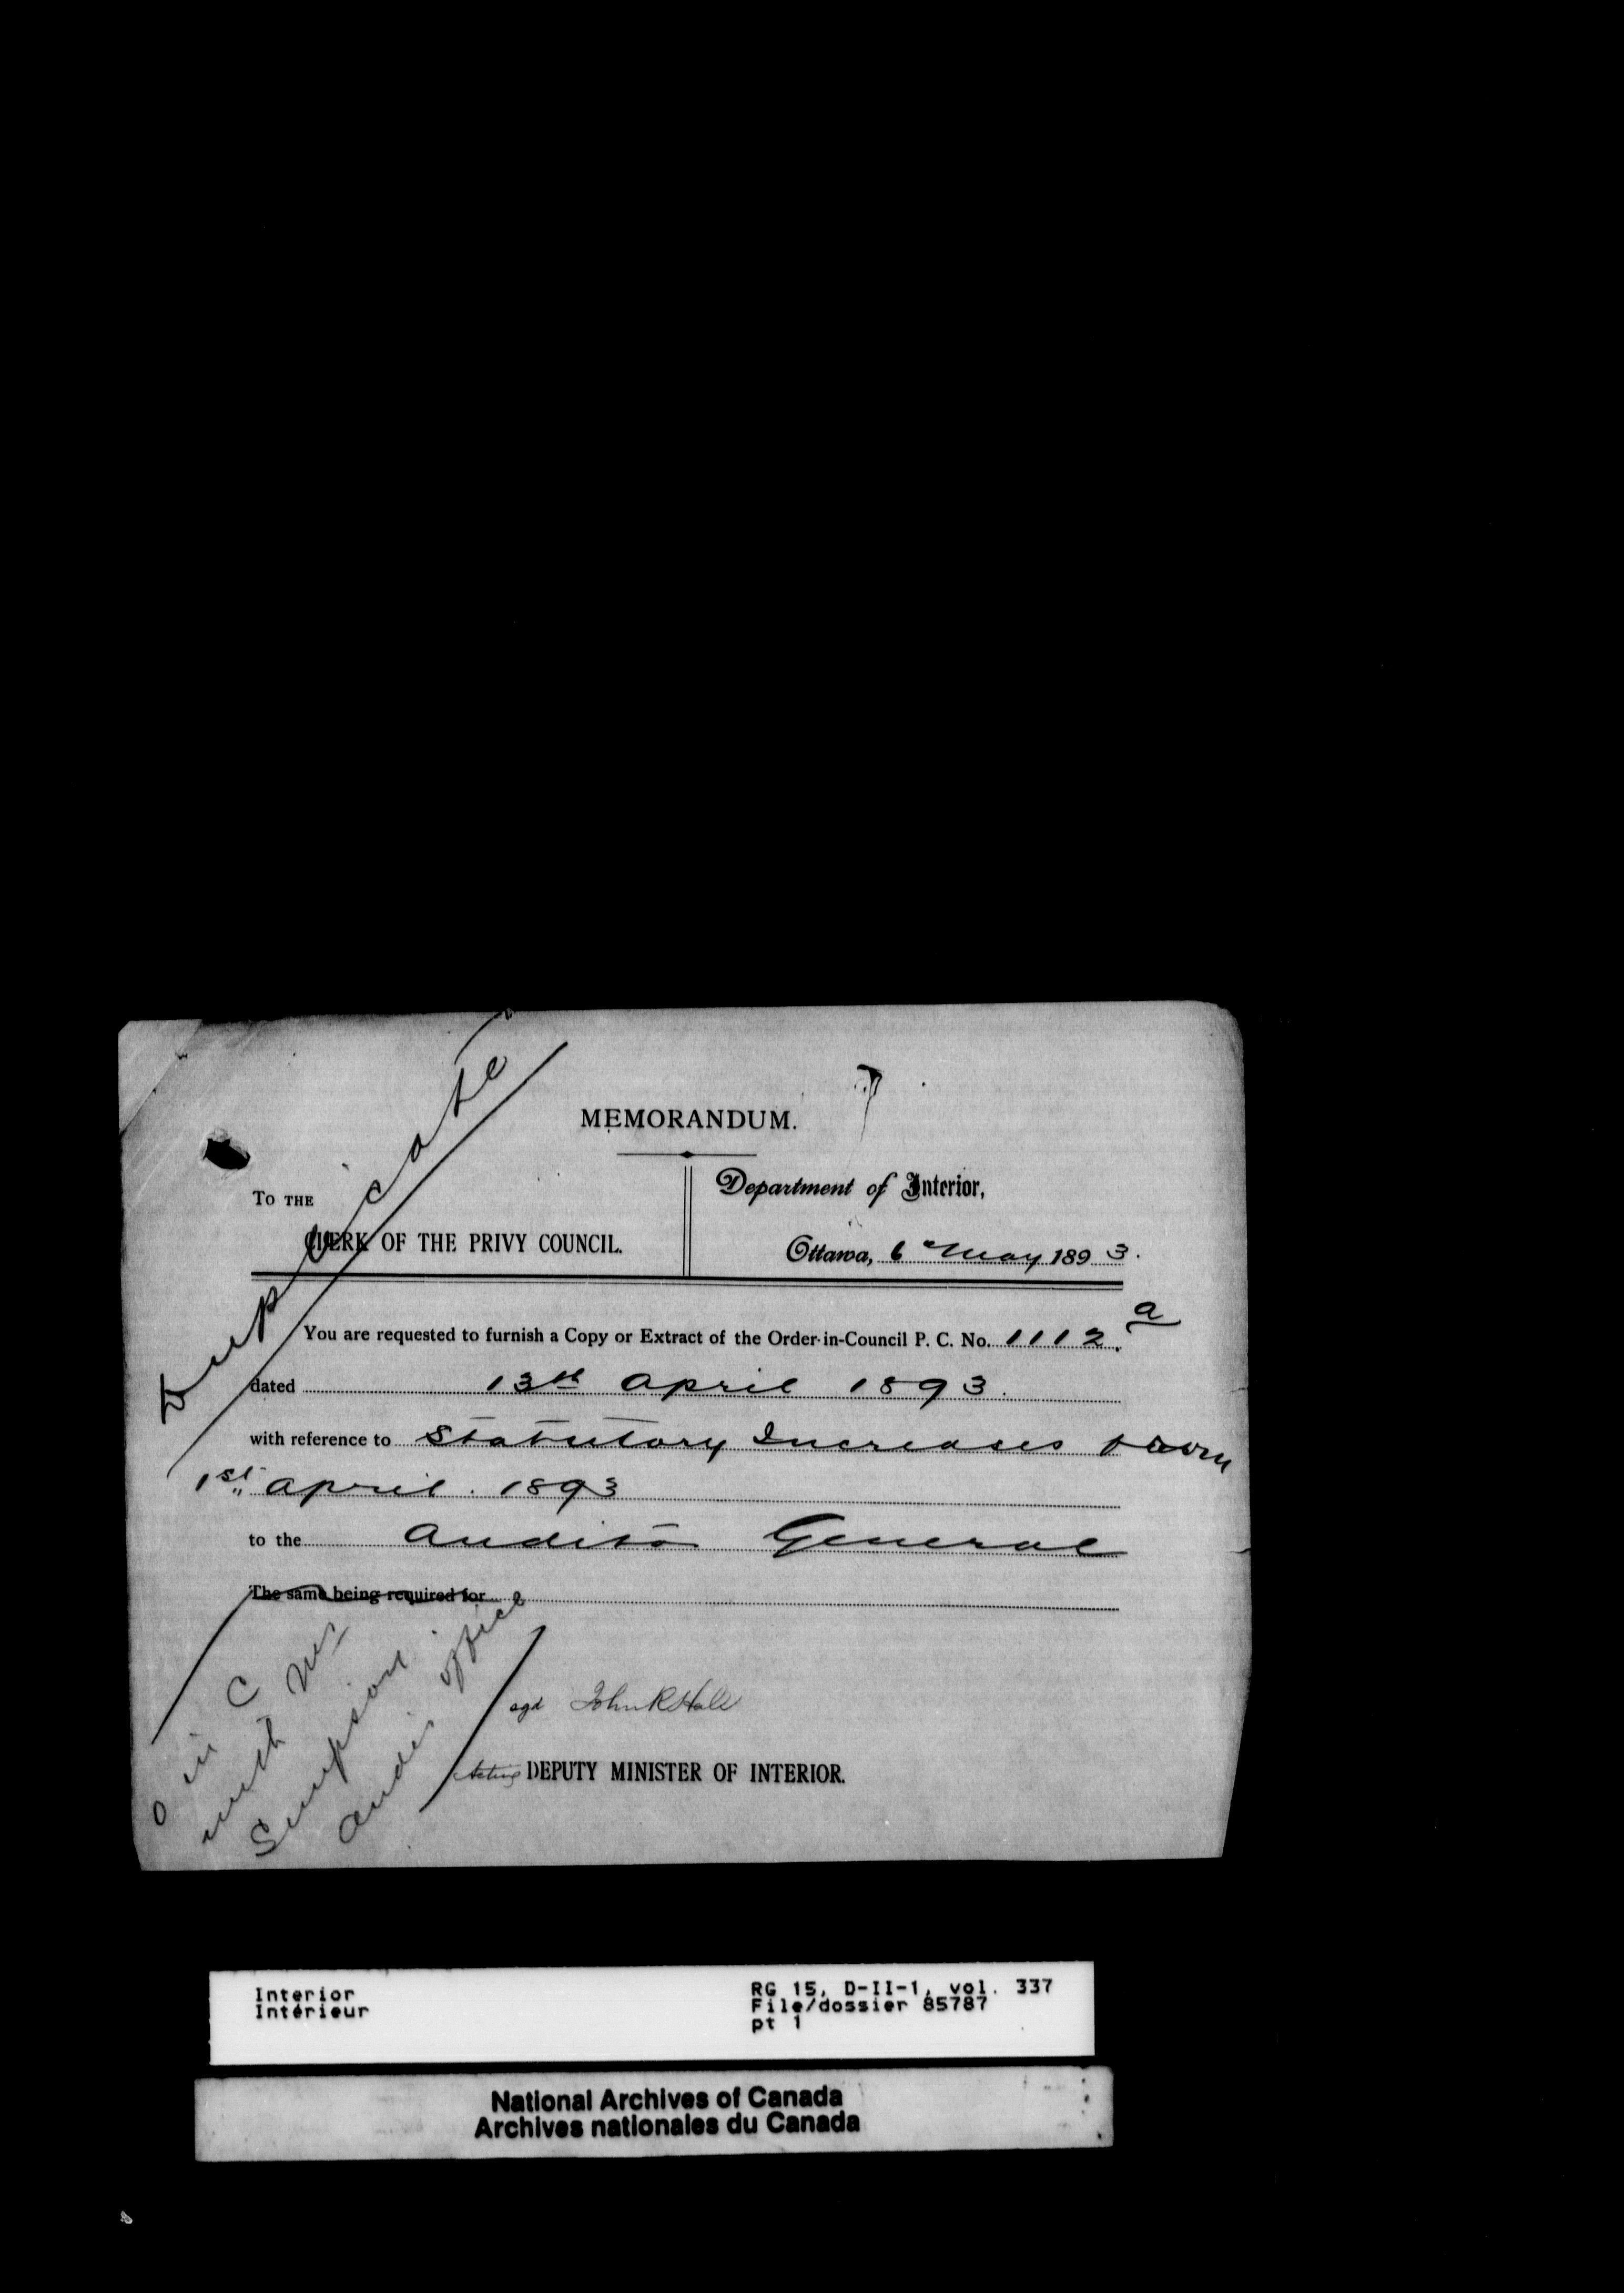 Duplicate
MEMORANDUM.
To the
CLERK OF THE PRIVY COUNCIL.
Department of Interior,
Ottawa, 6 May 1893.
You are requested to furnish a Copy or Extract of the Order-in-Council P. C. No. 1112. a
dated 13th April 1893.
with reference to Statutory Increases from
1st April. 1893
to the Auditor General
The same being required for
O in C
with Mr
Simpson
Audit office
sgd John R Hall
Acting DEPUTY MINISTER OF INTERIOR.
Interior
Intérieur
RG 15, D-II-1, vol. 337
File/dossier 85787
pt 1
National Archives of Canada
Archives nationales du Canada